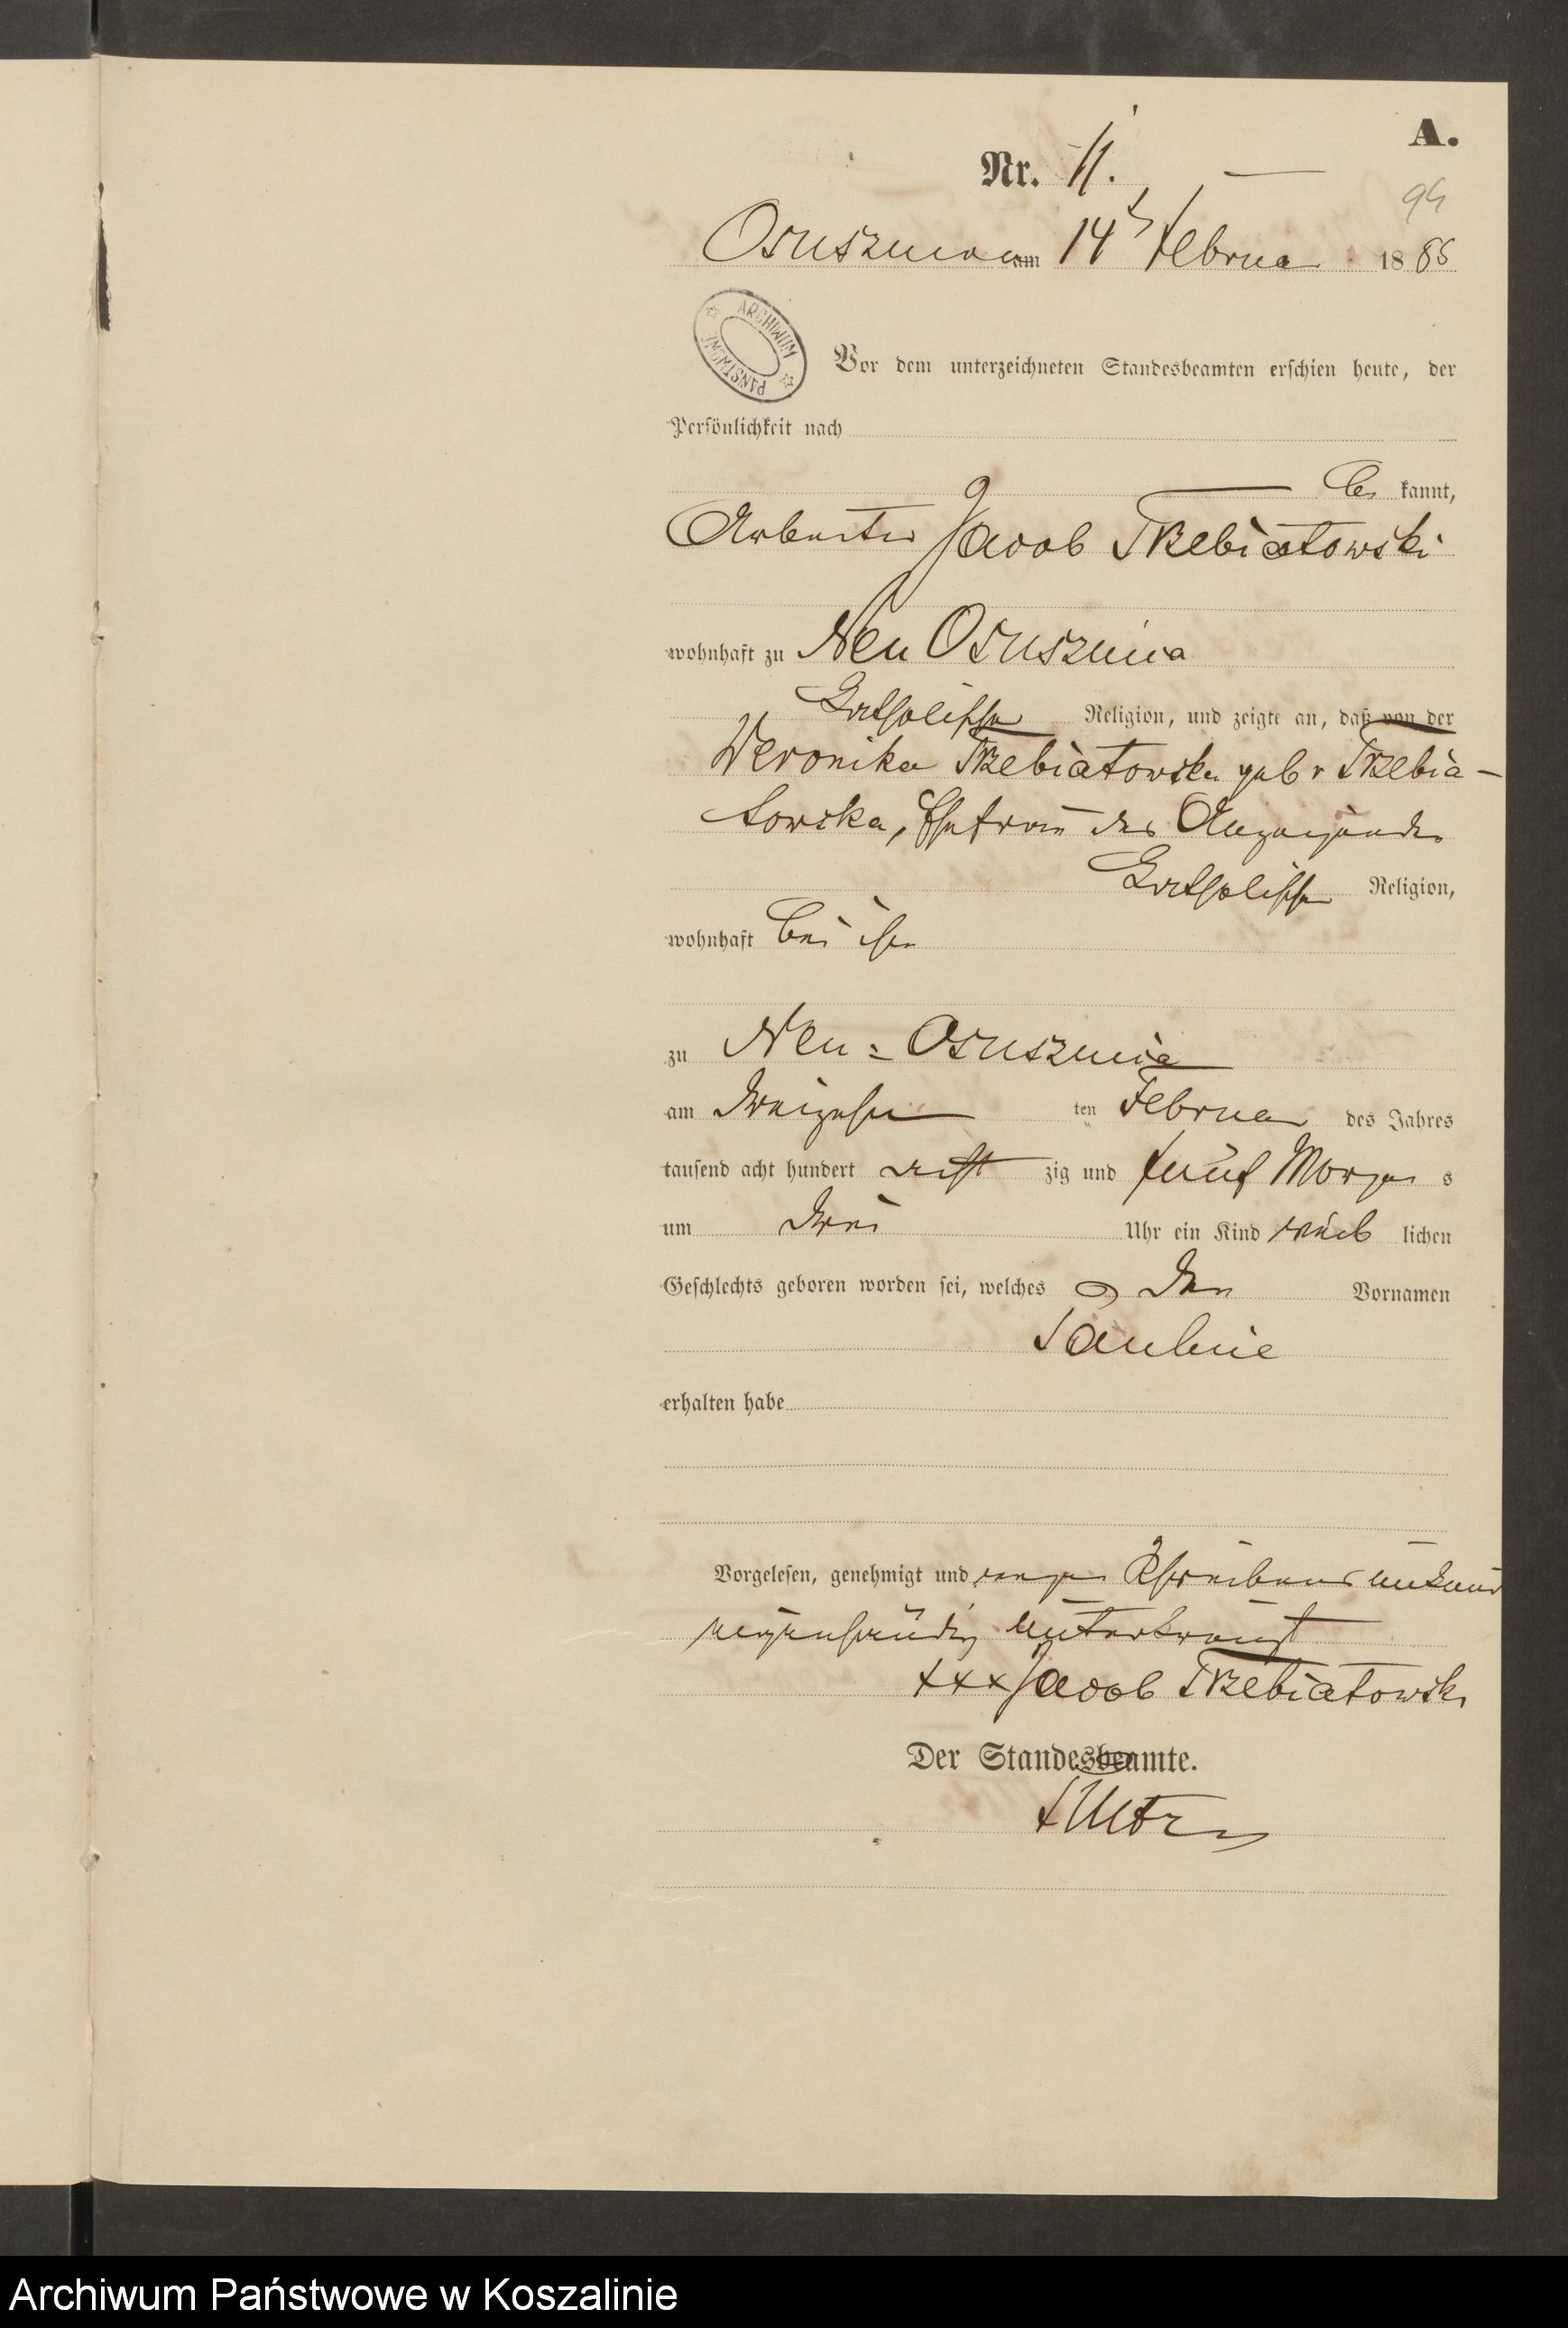 A.
Nr. 11.
94
Osusznica am 14 Februar 1885
ARCHIWUM PAŃSTWOWE
Vor dem unterzeichneten Standesbeamten erschien heute, der
Persönlichkeit nach
be kannt,
Arbeiter Jacob Trzebiatowski
wohnhaft zu Neu Osusznica
katholischer Religion, und zeigte an, daß von der
Weronika Trzebiatowska geb v Trzebia-
towska, Ehefrau des Anzeigenden
katholischer Religion,
wohnhaft bei ihm
zu Neu-Osusznica
am dreizehn ten Februar des Jahres
tausend acht hundert acht zig und fünf Morgen s
um drei Uhr ein Kind weib lichen
Geschlechts geboren worden sei, welches den Vornamen
Pauline
erhalten habe
Vorgelesen, genehmigt und wegen Schreibens unkund
eigenhändig unterkreuzt
xxx Jacob Trzebiatowski
Der Standesbeamte.
Archiwum Państwowe w Koszalinie